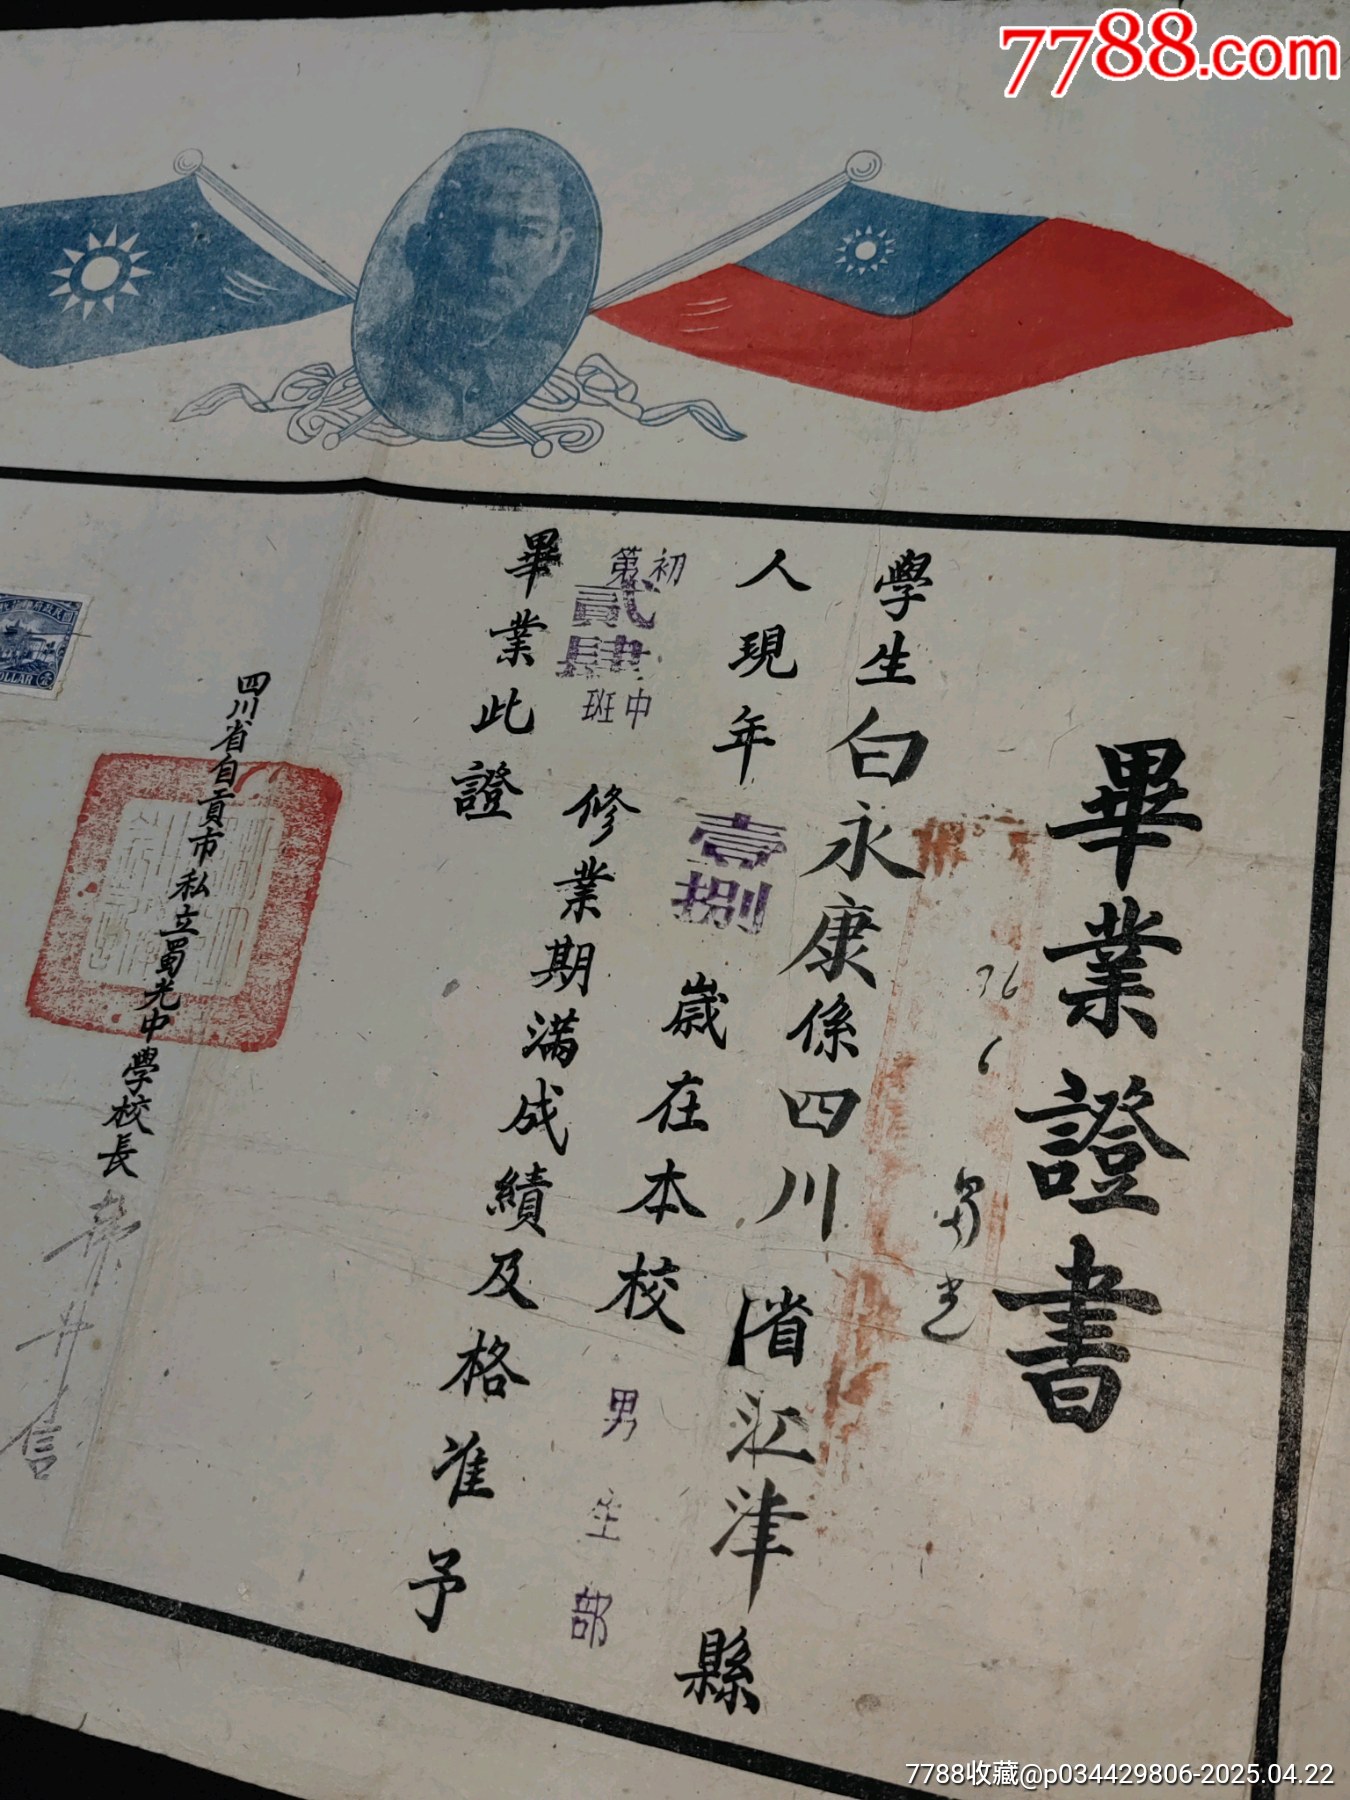 7788.com
畢業證書
76 6
學生白永康係四川省江津縣
人現年壹捌歲在本校男生部
初中
第貳肆班
修業期滿成績及格准予
畢業此證
四川省自貢市私立蜀光中學校長
DOLLAR
7788收藏@p034429806-2025.04.22